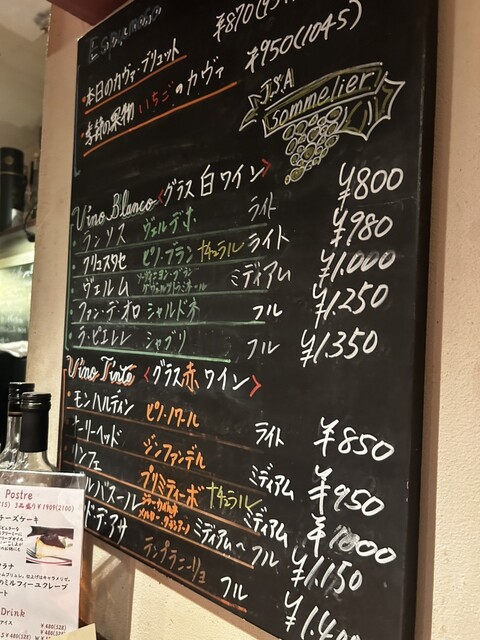 Espumoso
・本日のカヴァ・ブリュット ¥870
・季節の果物 いちごのカヴァ ¥950(1045)
J.S.A
Sommelier
Vino Blanco <グラス白ワイン>
・ランソス ヴェルデホ ライト ¥800
・フリュスタセ ピノ・ブラン ナチュラル ライト ¥980
・ヴェルム ミディアム ¥1.000
・ファン・デ・オロ シャルドネ フル ¥1.250
・ラ・ピエレレ シャブリ フル ¥1.350
Vino Tinto <グラス赤ワイン>
・モンハルディン ピノ・ノワール ライト ¥850
ヘッド ジンファンデル ミディアム ¥950
ンフェ プリミティーボ ナチュラル ミディアム ¥1000
ルバスール ミディアム〜フル ¥1.150
ド・デ・アサ テンプラニーリョ フル
Postre
3品盛り¥1909(2100)
チーズケーキ
のミルフィーユクレープ
Drink
アイス
¥480(528)
¥480(528)